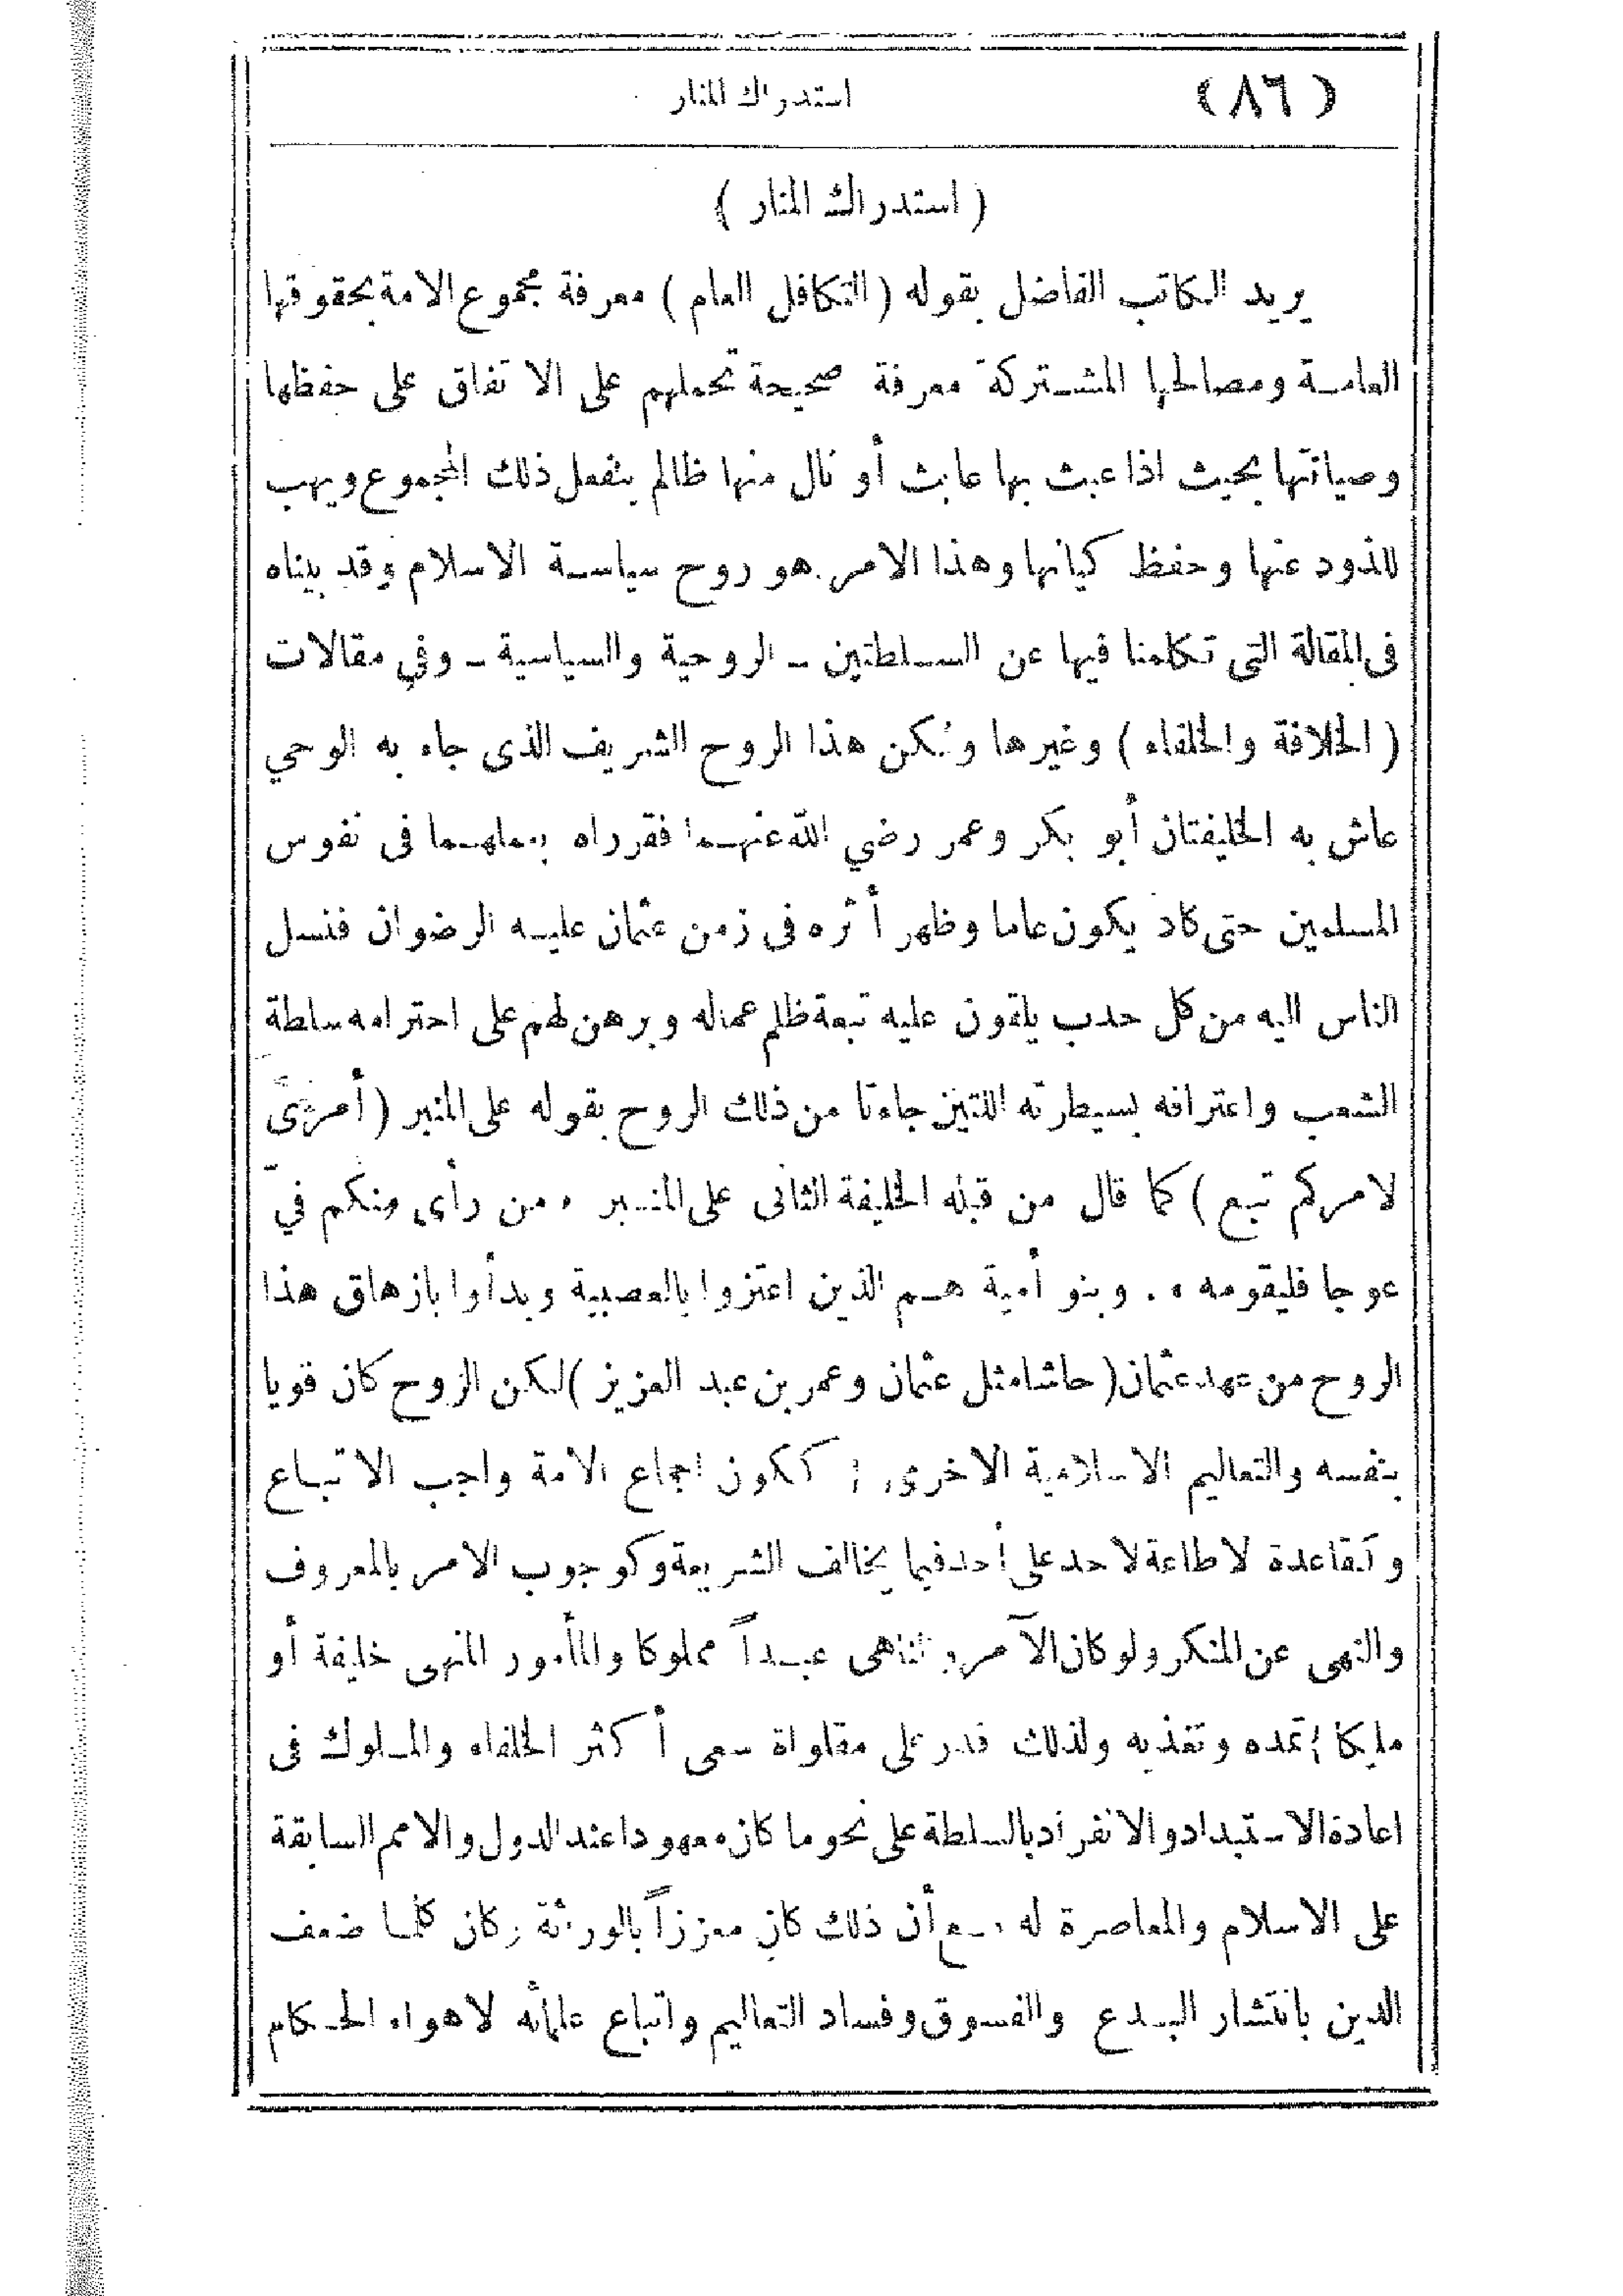 (٨٦) استدراك المنار
( استدراك المنار )
يريد الكاتب الفاضل بقوله ( التكافل العام ) معرفة مجموع الامة بحقوقها
العامة ومصالحها المشتركة معرفة صحيحة تحملهم على الاتفاق على حفظها
وصيانتها بحيث اذا عبث بها عابث أو نال منها ظالم ينفعل ذلك المجموع ويهب
للذود عنها وحفظ كيانها وهذا الامر هو روح سياسة الاسلام وقد بيناه
فى المقالة التى تكلمنا فيها عن السلطتين ـ الروحية والسياسية ـ وفي مقالات
( الخلافة والخلفاء ) وغيرها ولكن هذا الروح الشريف الذى جاء به الوحي
عاش به الخليفتان أبو بكر وعمر رضي الله عنهما فقرراه بعملهما فى نفوس
المسلمين حتى كاد يكون عاما وظهر أثره فى زمن عثمان عليه الرضوان فنسل
الناس اليه من كل حدب يلقون عليه تبعة ظلم عماله وبرهن لهم على احترامه سلطة
الشعب واعترافه بسيطرته اللتين جاءتا من ذلك الروح بقوله على المنبر ( أمرى
لامركم تبع ) كما قال من قبله الخليفة الثانى على المنبر « من رأى منكم فيّ
عوجا فليقومه » . وبنو أمية هم الذين اعتزوا بالعصبية وبدأوا بازهاق هذا
الروح من عهد عثمان ( حاشا مثل عثمان وعمر بن عبد العزيز ) لكن الروح كان قويا
بنفسه والتعاليم الاسلامية الاخرى ككون اجماع الامة واجب الاتباع
وكقاعدة لا طاعة لاحد على أحد فيما يخالف الشريعة وكوجوب الامر بالمعروف
والنهى عن المنكر ولو كان الآمر والناهى عبداً مملوكا والمأمور المنهى خليفة أو
مليكا تمده وتغذيه ولذلك قدر على مقاواة سعى أكثر الخلفاء والملوك فى
اعادة الاستبداد والانفراد بالسلطة على نحو ما كان معهودا عند الدول والامم السابقة
على الاسلام والمعاصرة له مع أن ذلك كان معززاً بالوراثة وكان كلما ضعف
الدين بانتشار البدع والفسوق وفساد التعاليم واتباع علمائه لاهواء الحكام